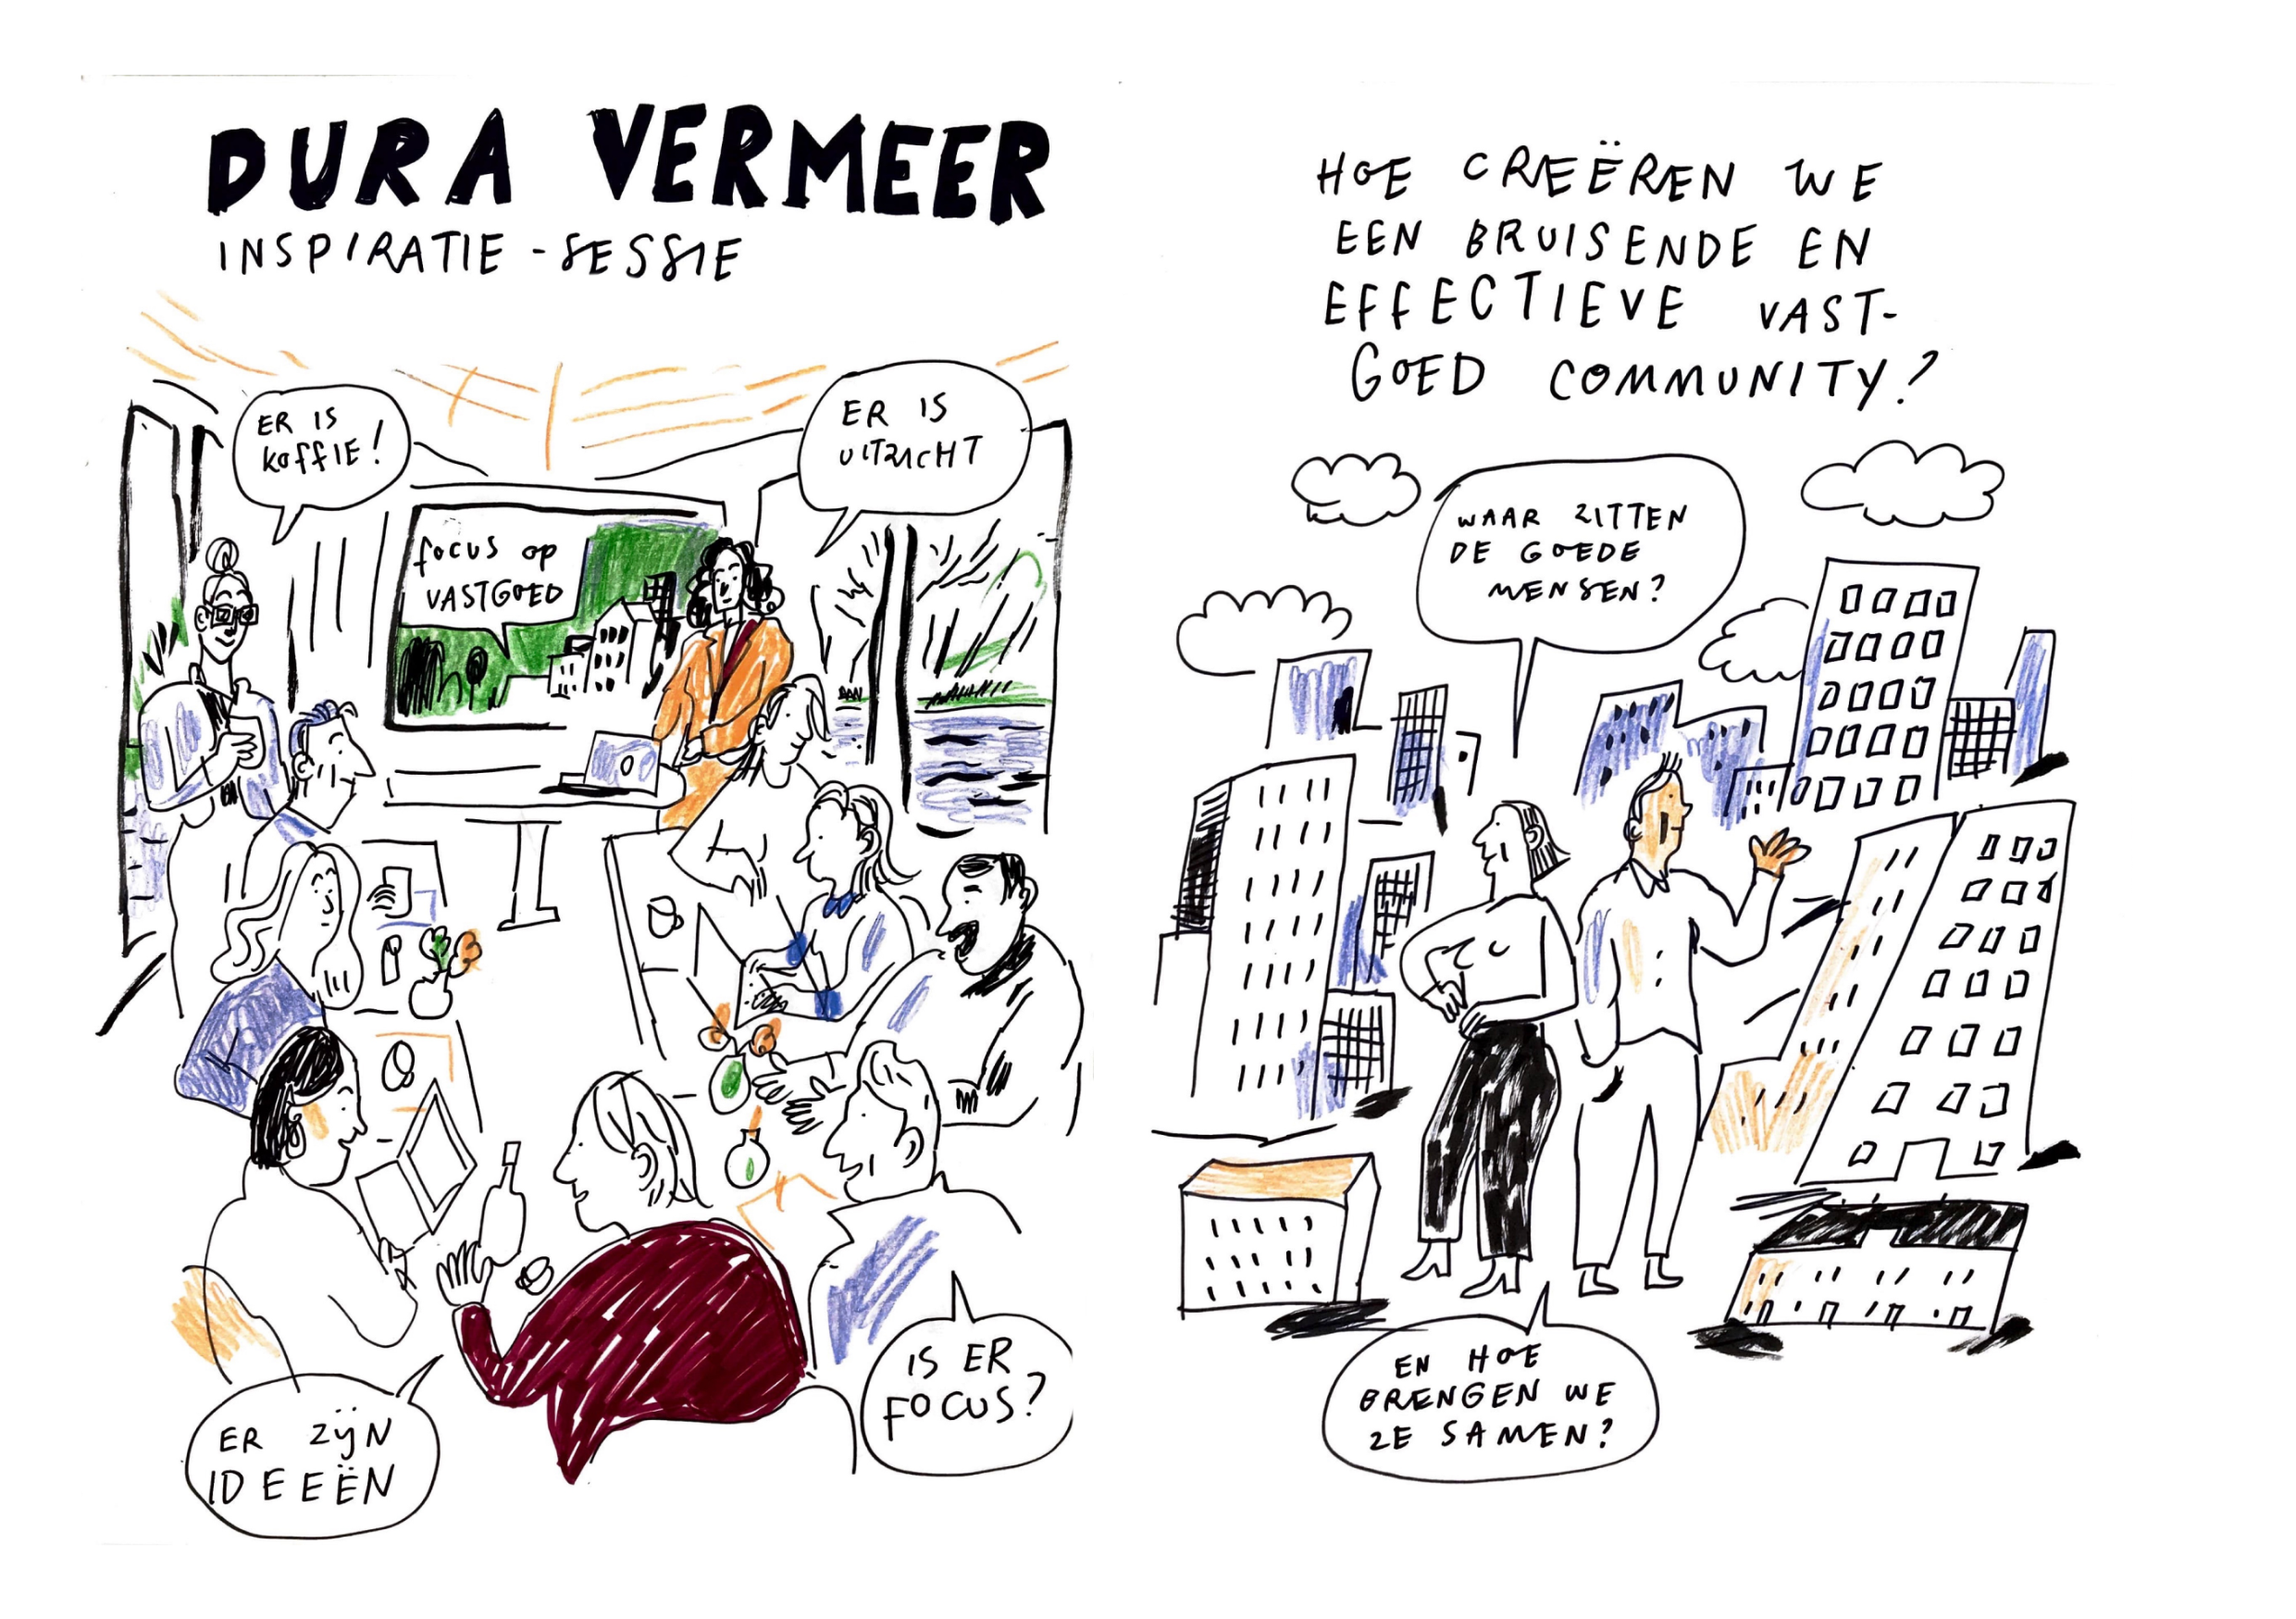 DURA VERMEER
INSPIRATIE-SESSIE
ER IS
KOFFIE!
ER IS
UITZICHT
FOCUS OP
VASTGOED
ER ZIJN
IDEEËN
IS ER
FOCUS?
HOE CREËREN WE
EEN BRUISENDE EN
EFFECTIEVE VAST-
GOED COMMUNITY?
WAAR ZITTEN
DE GOEDE
MENSEN?
EN HOE
BRENGEN WE
ZE SAMEN?